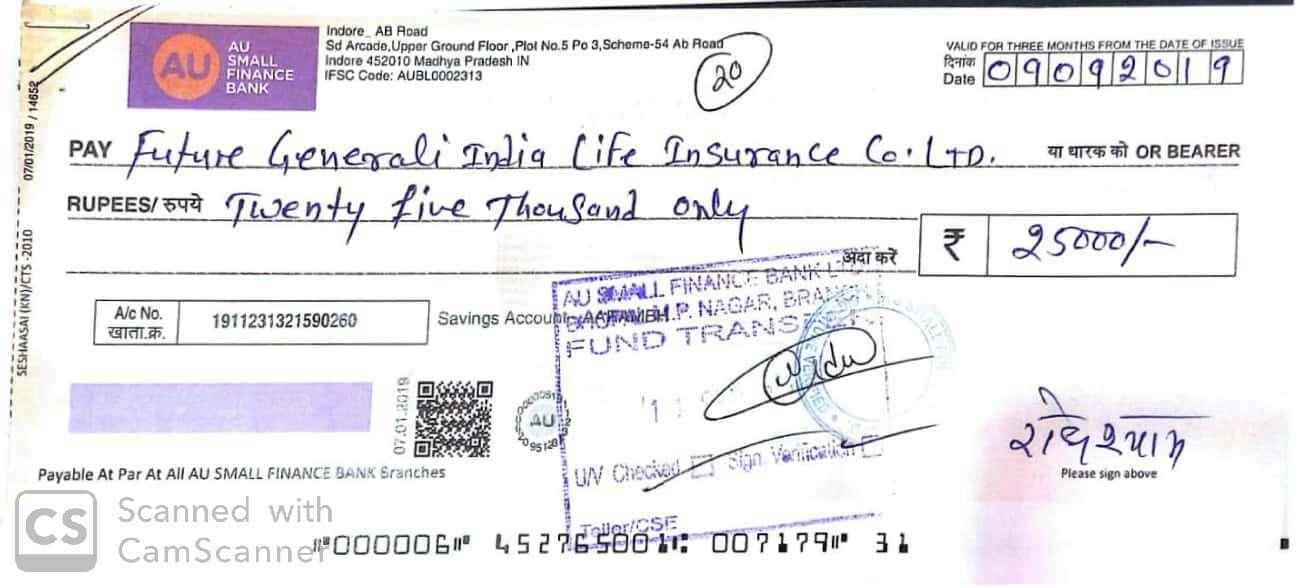 AU
AU SMALL FINANCE BANK
Indore_ AB Road
Sd Arcade,Upper Ground Floor ,Plot No.5 Po 3,Scheme-54 Ab Road
Indore 452010 Madhya Pradesh IN
IFSC Code: AUBL0002313
20
VALID FOR THREE MONTHS FROM THE DATE OF ISSUE
दिनांक
Date 09092019
PAY Future Generali India Life Insurance Co. LTD. या धारक को OR BEARER
RUPEES/ रुपये Twenty five Thousand only
अदा करें
₹ 25000/-
A/c No.
खाता.क्र. 1911231321590260
Savings Account-AARAMBH
AU SMALL FINANCE BANK LTD.
BHOPAL M.P. NAGAR, BRANCH
FUND TRANSFER
U/V Checked Sign. Verification
Teller/CSE
07.01.2019
AU
SESHAASAI (KN)/CTS -2010 07/01/2019 / 14652
राधेश्याम
Please sign above
Payable At Par At All AU SMALL FINANCE BANK Branches
CS Scanned with
CamScanner
⑈000006⑈ 452765001⑆ 007179⑈ 31